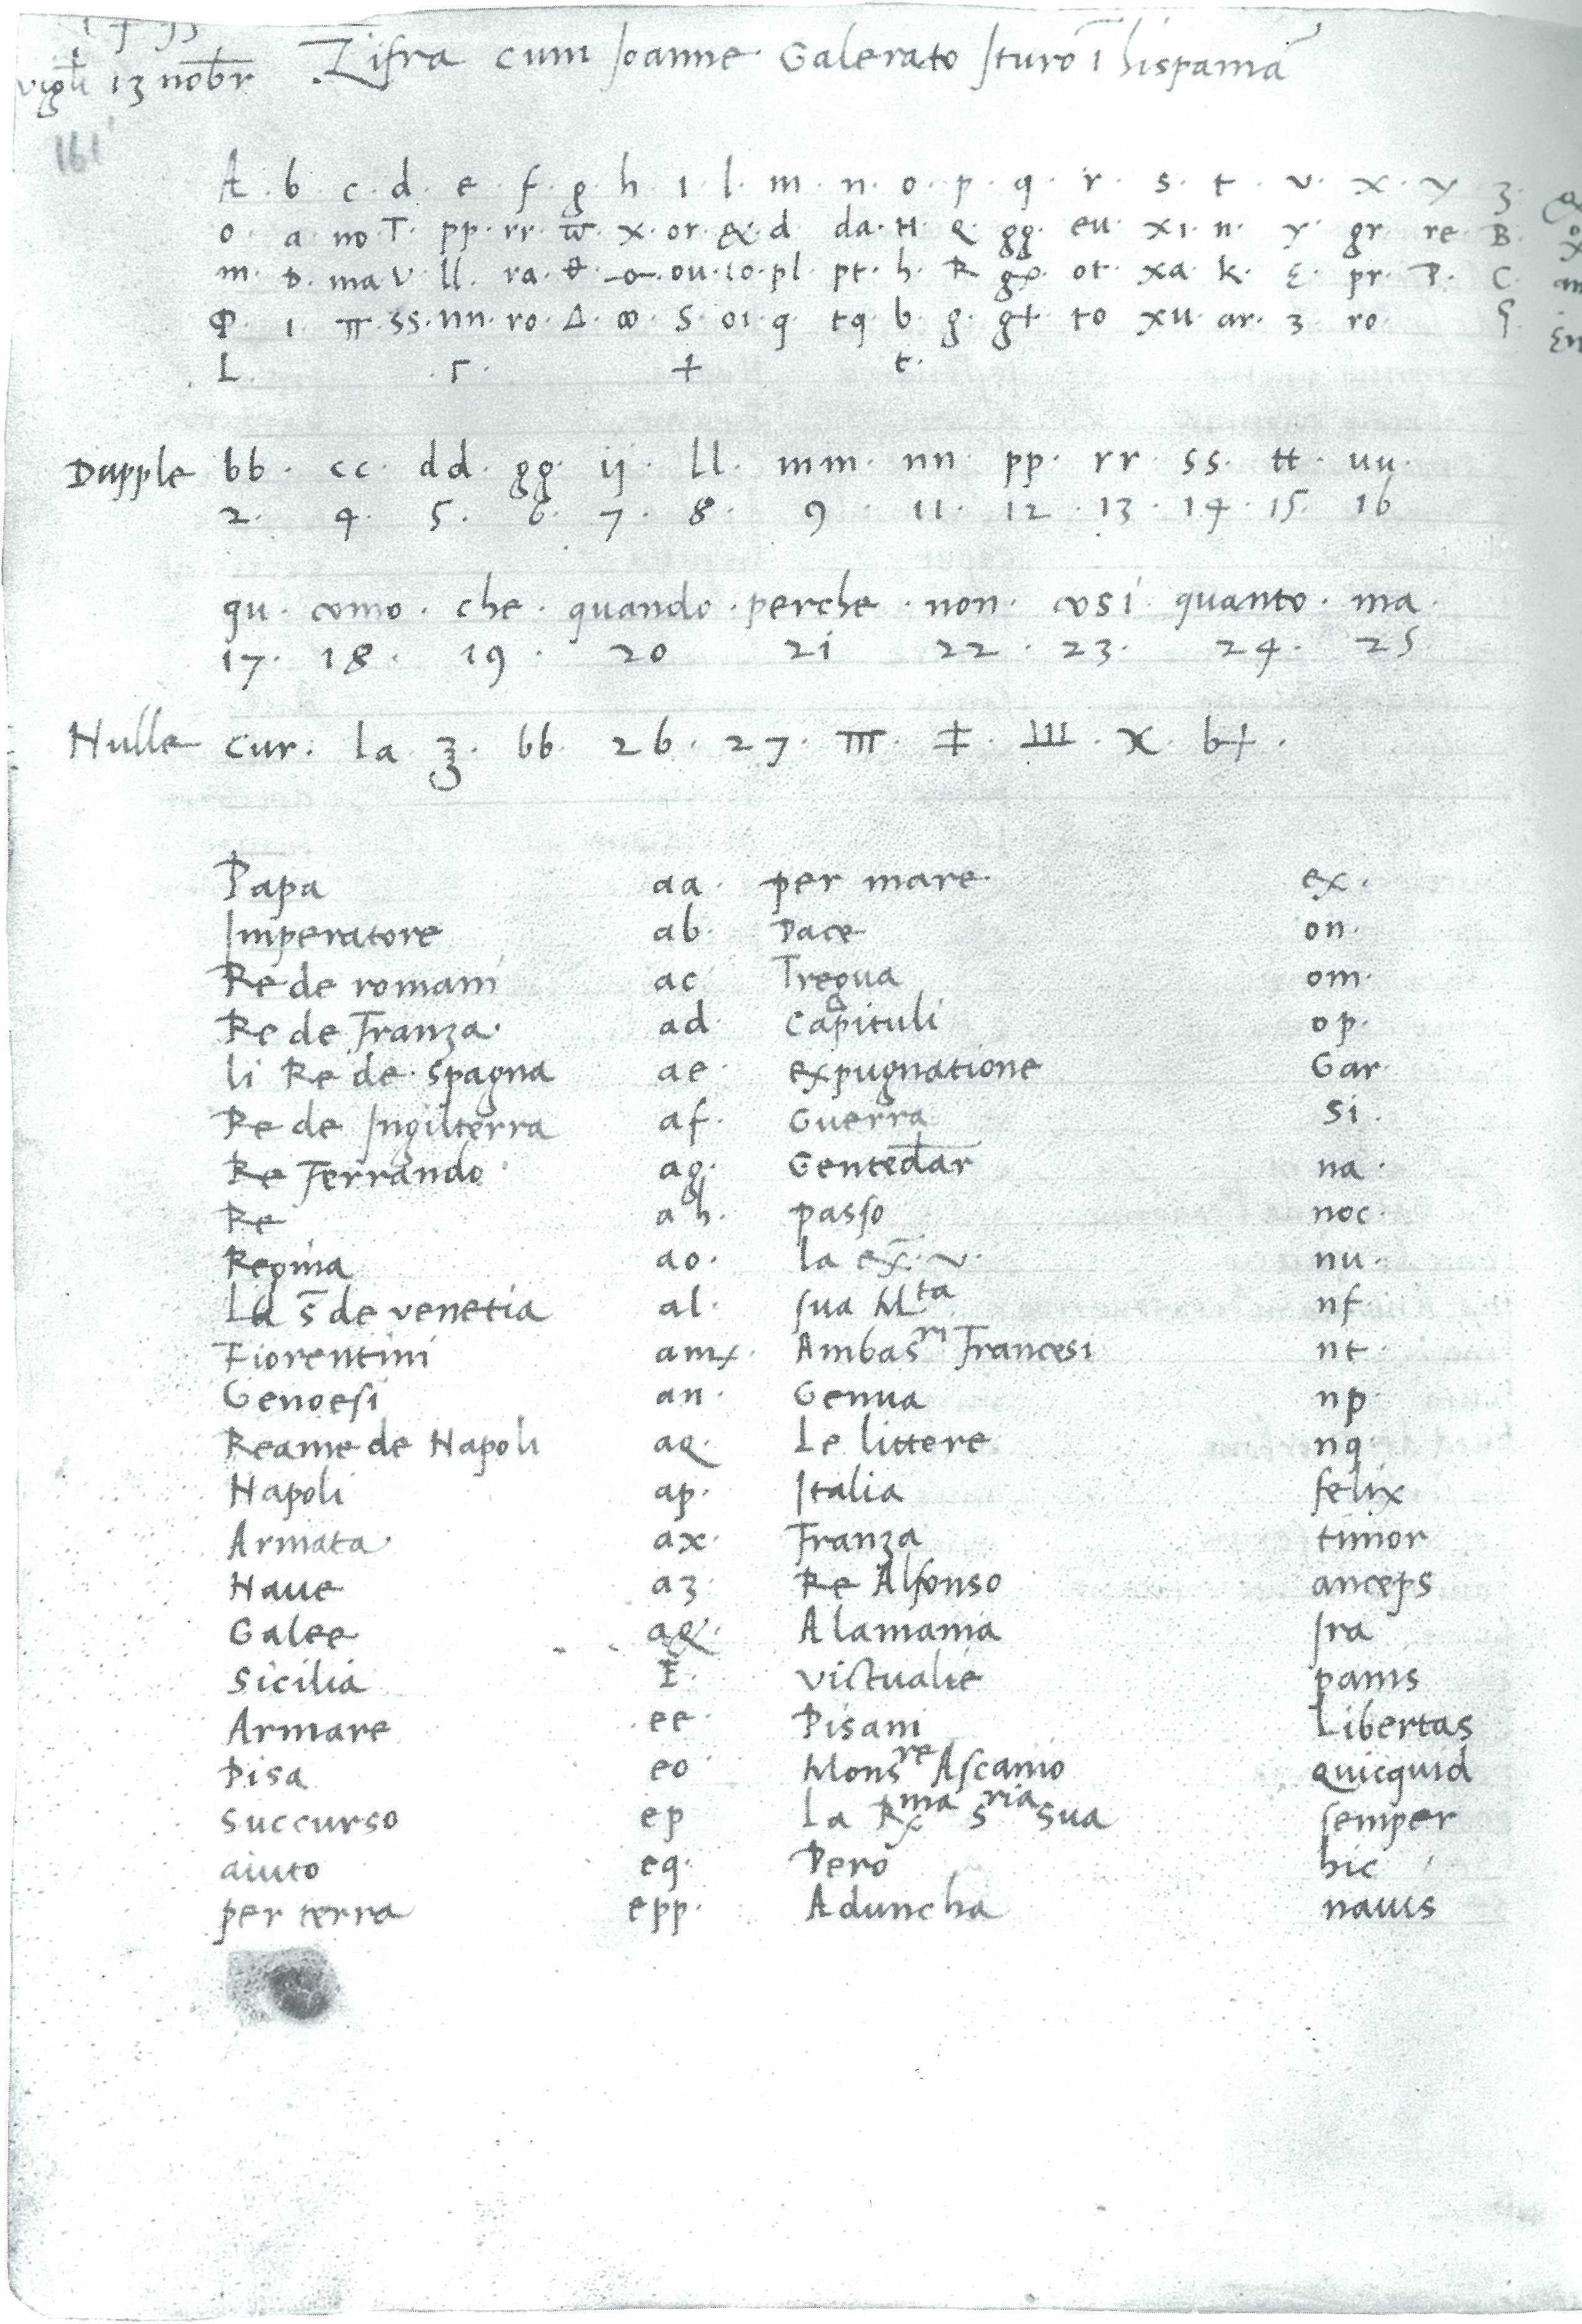 1495
vigli 13 nobr Zifra cum Joanne Galerato ituro ī hispaniā
161
A · b · c · d · e · f · g · h · i · l · m · n · o · p · q · r · s · t · v · x · y · z ·
o · a · no · T · pp · rr · w̄ · x · or · & · d · da · H · Q · gg · eu · xi · n · y · gr · re · B ·
m · D · ma · v · ll · ra · ou · io · pl · pt · h · R · ot · xa · k · Ɛ · pr · P · C ·
Φ · i · π · ss · nn · ro · Δ · ∞ · S · oi · q · tq · b · g · g+ · to · xu · ar · 3 · ro · 9
L · r · + · t ·
Dupple bb · cc · dd · gg · ij · ll · mm · nn · pp · rr · ss · tt · uu ·
2 · 4 · 5 · 6 · 7 · 8 · 9 · 11 · 12 · 13 · 14 · 15 · 16
qu · como · che · quando · perche · non · cosi · quanto · ma ·
17 · 18 · 19 · 20 21 22 · 23 · 24 · 25
Nulle cur · la · bb · 26 · 27 · III · ‡ · III · x · b+ ·
Papa aa · per mare · ex ·
Imperatore ab · Pace on ·
Re de romani ac Tregua om ·
Re de Franza · ad · Capituli op ·
li Re de spagna ae · expugnatione Gar ·
Re de Ingilterra af · Guerra si ·
Re Ferrando ag · Gente dar na ·
Re ah · passo noc ·
Regina ao · la ex̄ · v · nu ·
La s̄ de venetia al · sua Mta nf ·
Fiorentini am · Ambasri Francesi nt ·
Genoesi an · Genua np ·
Reame de Napoli aq · Le littere nq ·
Napoli ap · Italia felix
Armata · ax · Franza timor
Naue az · Re Alfonso anceps
Galee a& · Alamania fra
Sicilia I · victualie panis
Armare · ee · Pisani Libertas
Pisa eo Monsre Ascanio quicquid
succurso ep La Rma sria sua semper
aiuto eq · Pero hic
per terra epp · Aduncha nauis